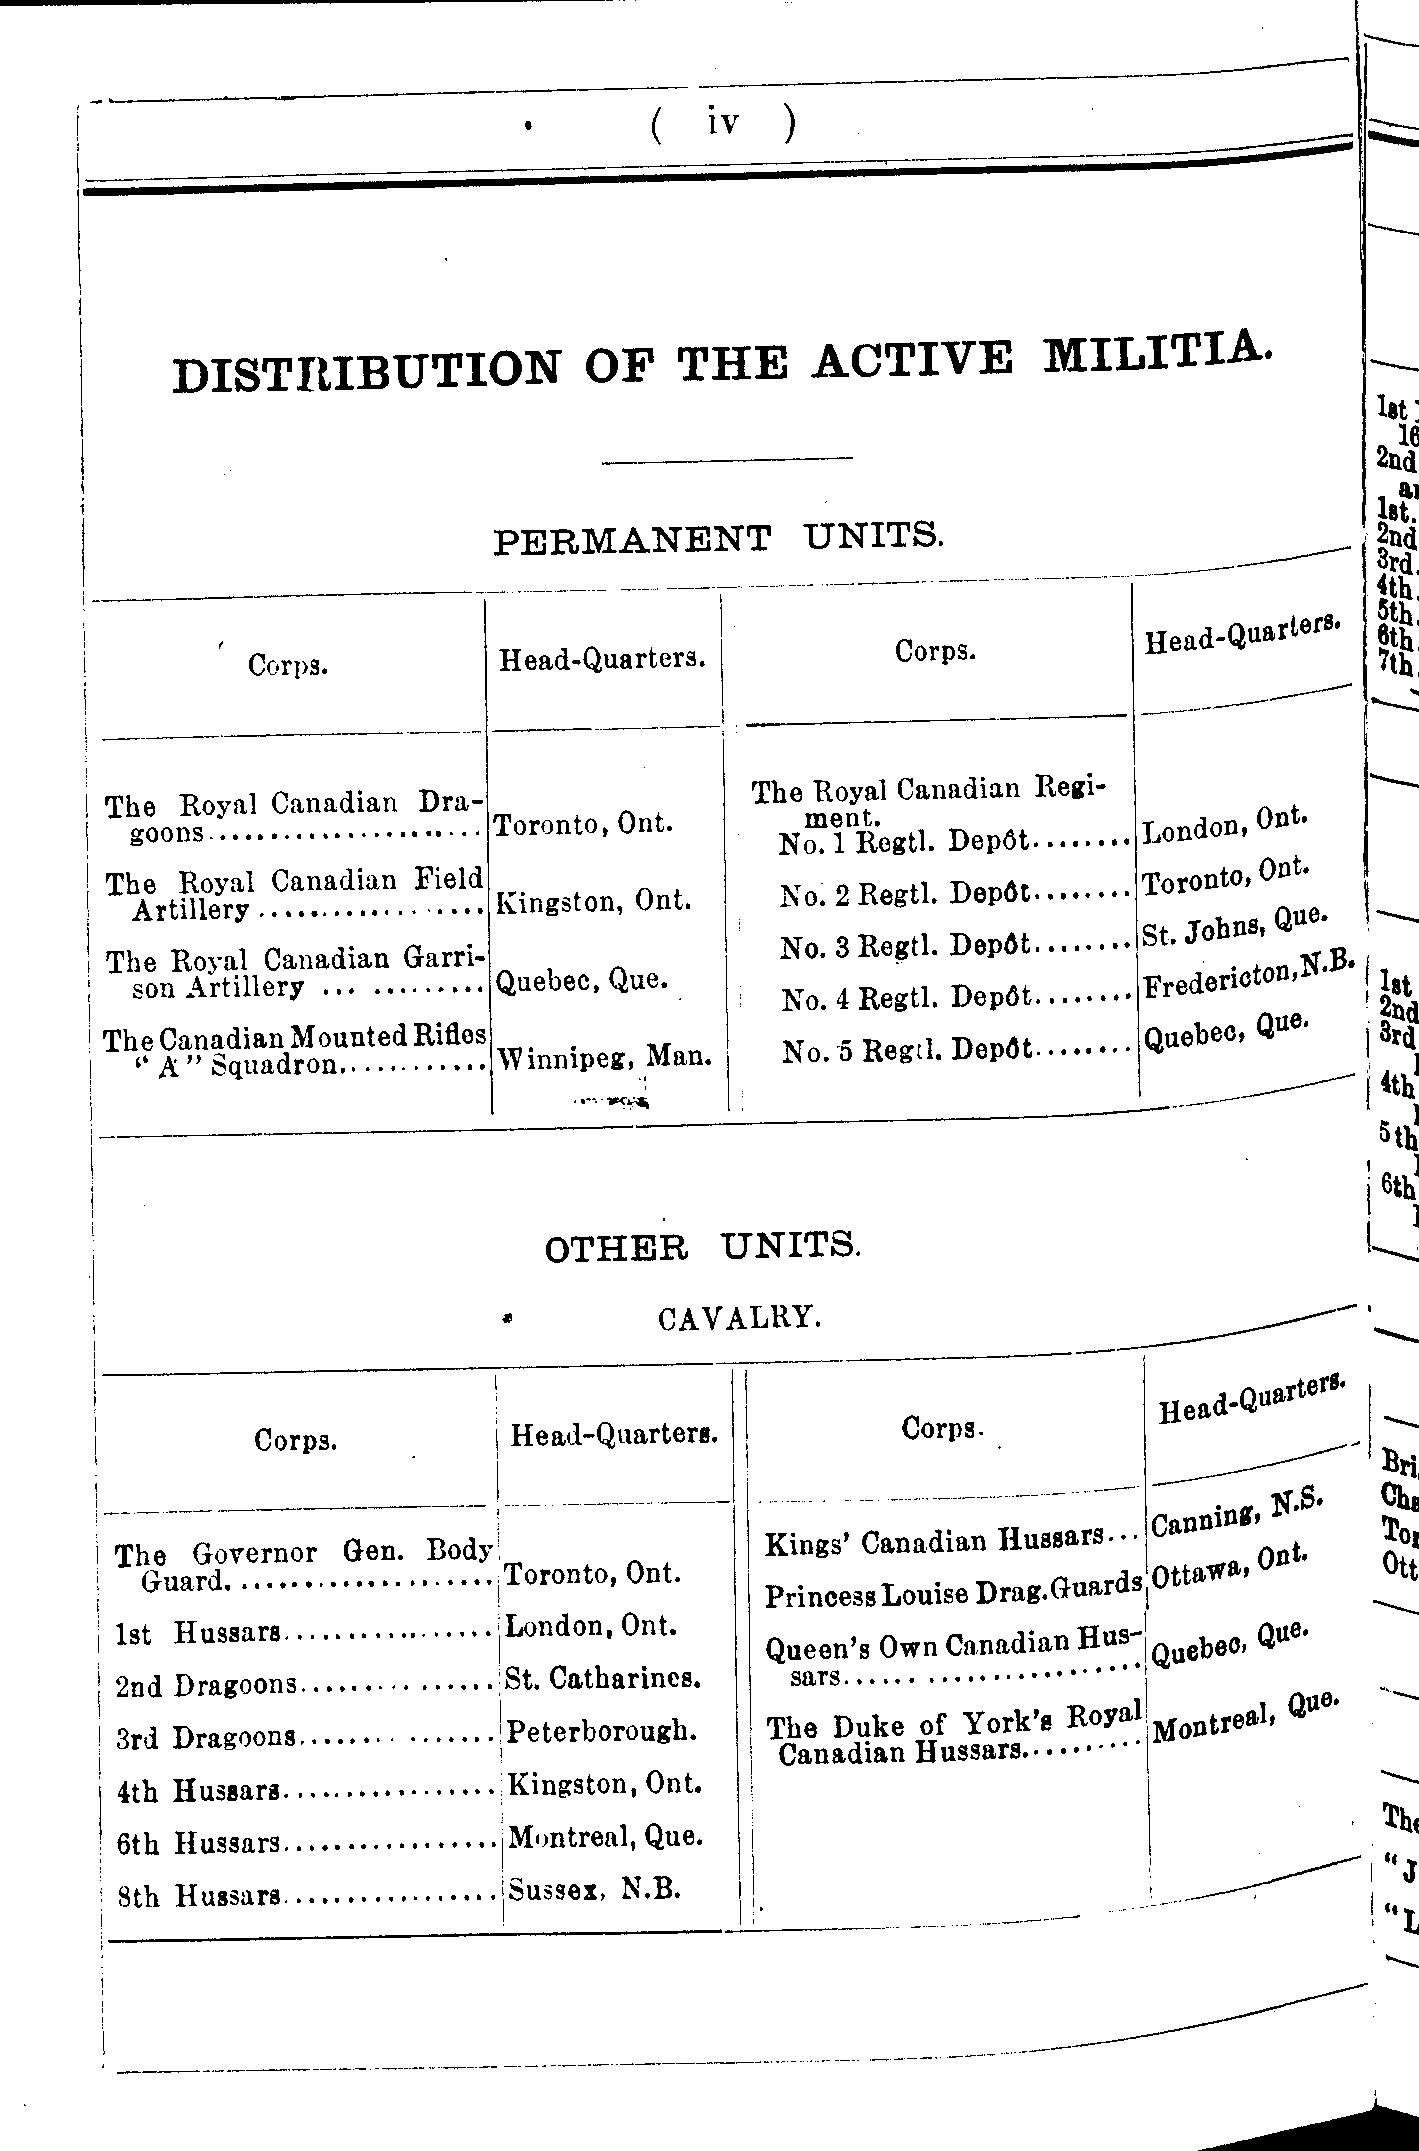 ( iv )
DISTRIBUTION OF THE ACTIVE MILITIA.
PERMANENT UNITS.
Corps.
Head-Quarters.
The Royal Canadian Dra-
goons.................... Toronto, Ont.
The Royal Canadian Field
Artillery.................... Kingston, Ont.
The Royal Canadian Garri-
son Artillery ... ......... Quebec, Que.
The Canadian Mounted Rifles
“ A ” Squadron............ Winnipeg, Man.
Corps.
Head-Quarters.
The Royal Canadian Regi-
ment.
No. 1 Regtl. Depôt........ London, Ont.
No. 2 Regtl. Depôt........ Toronto, Ont.
No. 3 Regtl. Depôt........ St. Johns, Que.
No. 4 Regtl. Depôt........ Fredericton, N.B.
No. 5 Regtl. Depôt........ Quebec, Que.
OTHER UNITS.
CAVALRY.
Corps.
Head-Quarters.
The Governor Gen. Body
Guard..................... Toronto, Ont.
1st Hussars................. London, Ont.
2nd Dragoons............... St. Catharines.
3rd Dragoons............... Peterborough.
4th Hussars................. Kingston, Ont.
6th Hussars................. Montreal, Que.
8th Hussars................. Sussex, N.B.
Corps.
Head-Quarters.
Kings’ Canadian Hussars... Canning, N.S.
Princess Louise Drag. Guards Ottawa, Ont.
Queen’s Own Canadian Hus-
sars....................... Quebec, Que.
The Duke of York’s Royal
Canadian Hussars.......... Montreal, Que.
1st
16
2nd
1st.
2nd
3rd.
4th.
5th.
6th.
7th.
1st
2nd
3rd
4th
5th
6th
The